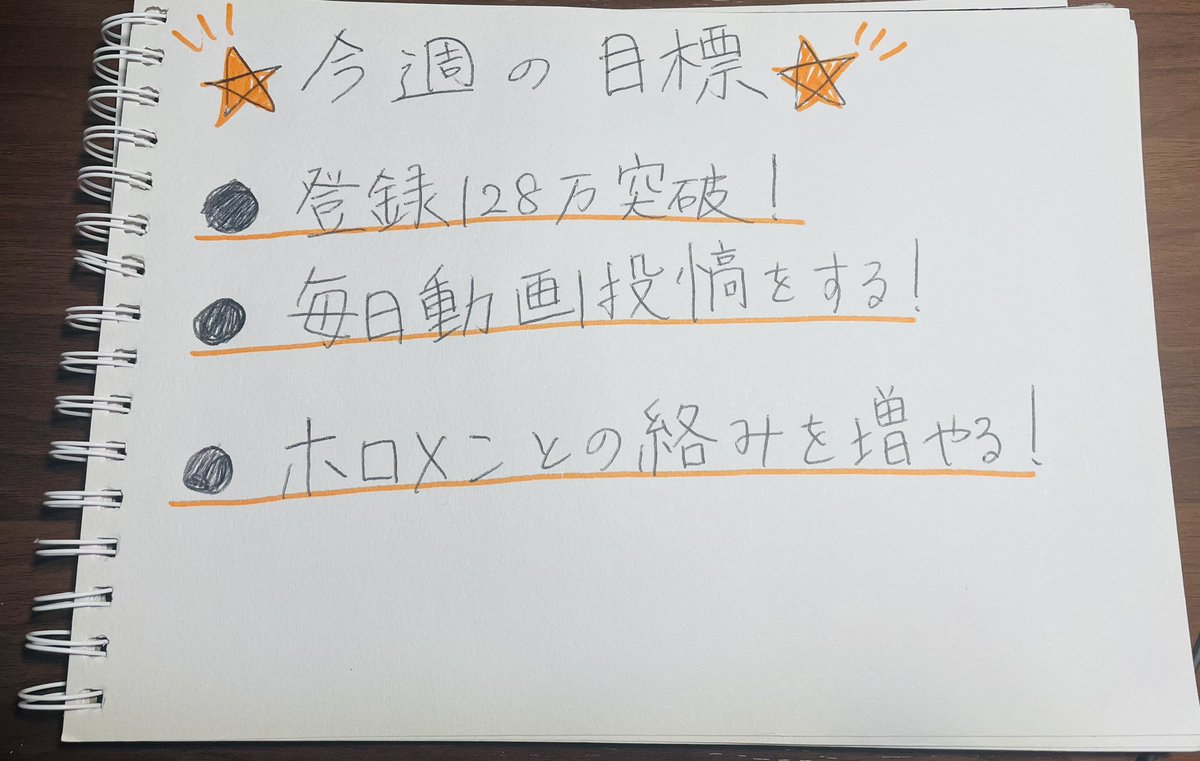 今週の目標
登録128万突破!
毎日動画1投稿をする!
ホロメンとの絡みを増やる!